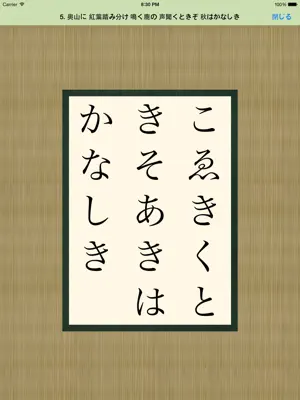 Carrier 8:35 PM 100%
5. 奥山に 紅葉踏み分け 鳴く鹿の 声聞くときぞ 秋はかなしき 閉じる
こゑきくと
きそあきは
かなしき